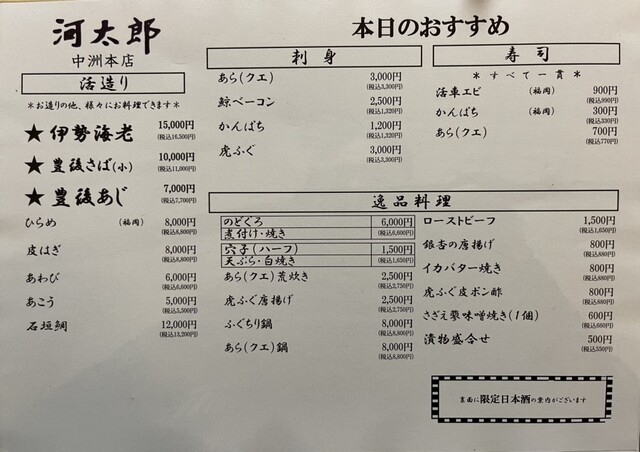 河太郎
中洲本店
本日のおすすめ
活造り
＊お造りの他、様々にお料理できます＊
★ 伊勢海老 15,000円
(税込16,500円)
★ 豊後さば(小) 10,000円
(税込11,000円)
★ 豊後あじ 7,000円
(税込7,700円)
ひらめ (福岡) 8,000円
(税込8,800円)
皮はぎ 8,000円
(税込8,800円)
あわび 6,000円
(税込6,600円)
あこう 5,000円
(税込5,500円)
石垣鯛 12,000円
(税込13,200円)
刺身
あら(クエ) 3,000円
(税込3,300円)
鯨ベーコン 2,500円
(税込1,320円)
かんぱち 1,200円
(税込1,320円)
虎ふぐ 3,000円
(税込3,300円)
寿司
＊すべて一貫＊
活車エビ (福岡) 900円
(税込990円)
かんぱち (福岡) 300円
(税込330円)
あら(クエ) 700円
(税込770円)
逸品料理
のどぐろ 6,000円
煮付け・焼き (税込6,600円)
穴子(ハーフ) 1,500円
天ぷら・白焼き (税込1,650円)
あら(クエ)荒炊き 2,500円
(税込2,750円)
虎ふぐ唐揚げ 2,500円
(税込2,750円)
ふぐちり鍋 8,000円
(税込8,800円)
あら(クエ)鍋 8,000円
(税込8,800円)
ローストビーフ 1,500円
(税込1,650円)
銀杏の唐揚げ 800円
(税込880円)
イカバター焼き 800円
(税込880円)
虎ふぐ皮ポン酢 800円
(税込880円)
さざえ葱味噌焼き(1個) 600円
(税込660円)
漬物盛合せ 500円
(税込550円)
裏面に限定日本酒の案内がございます